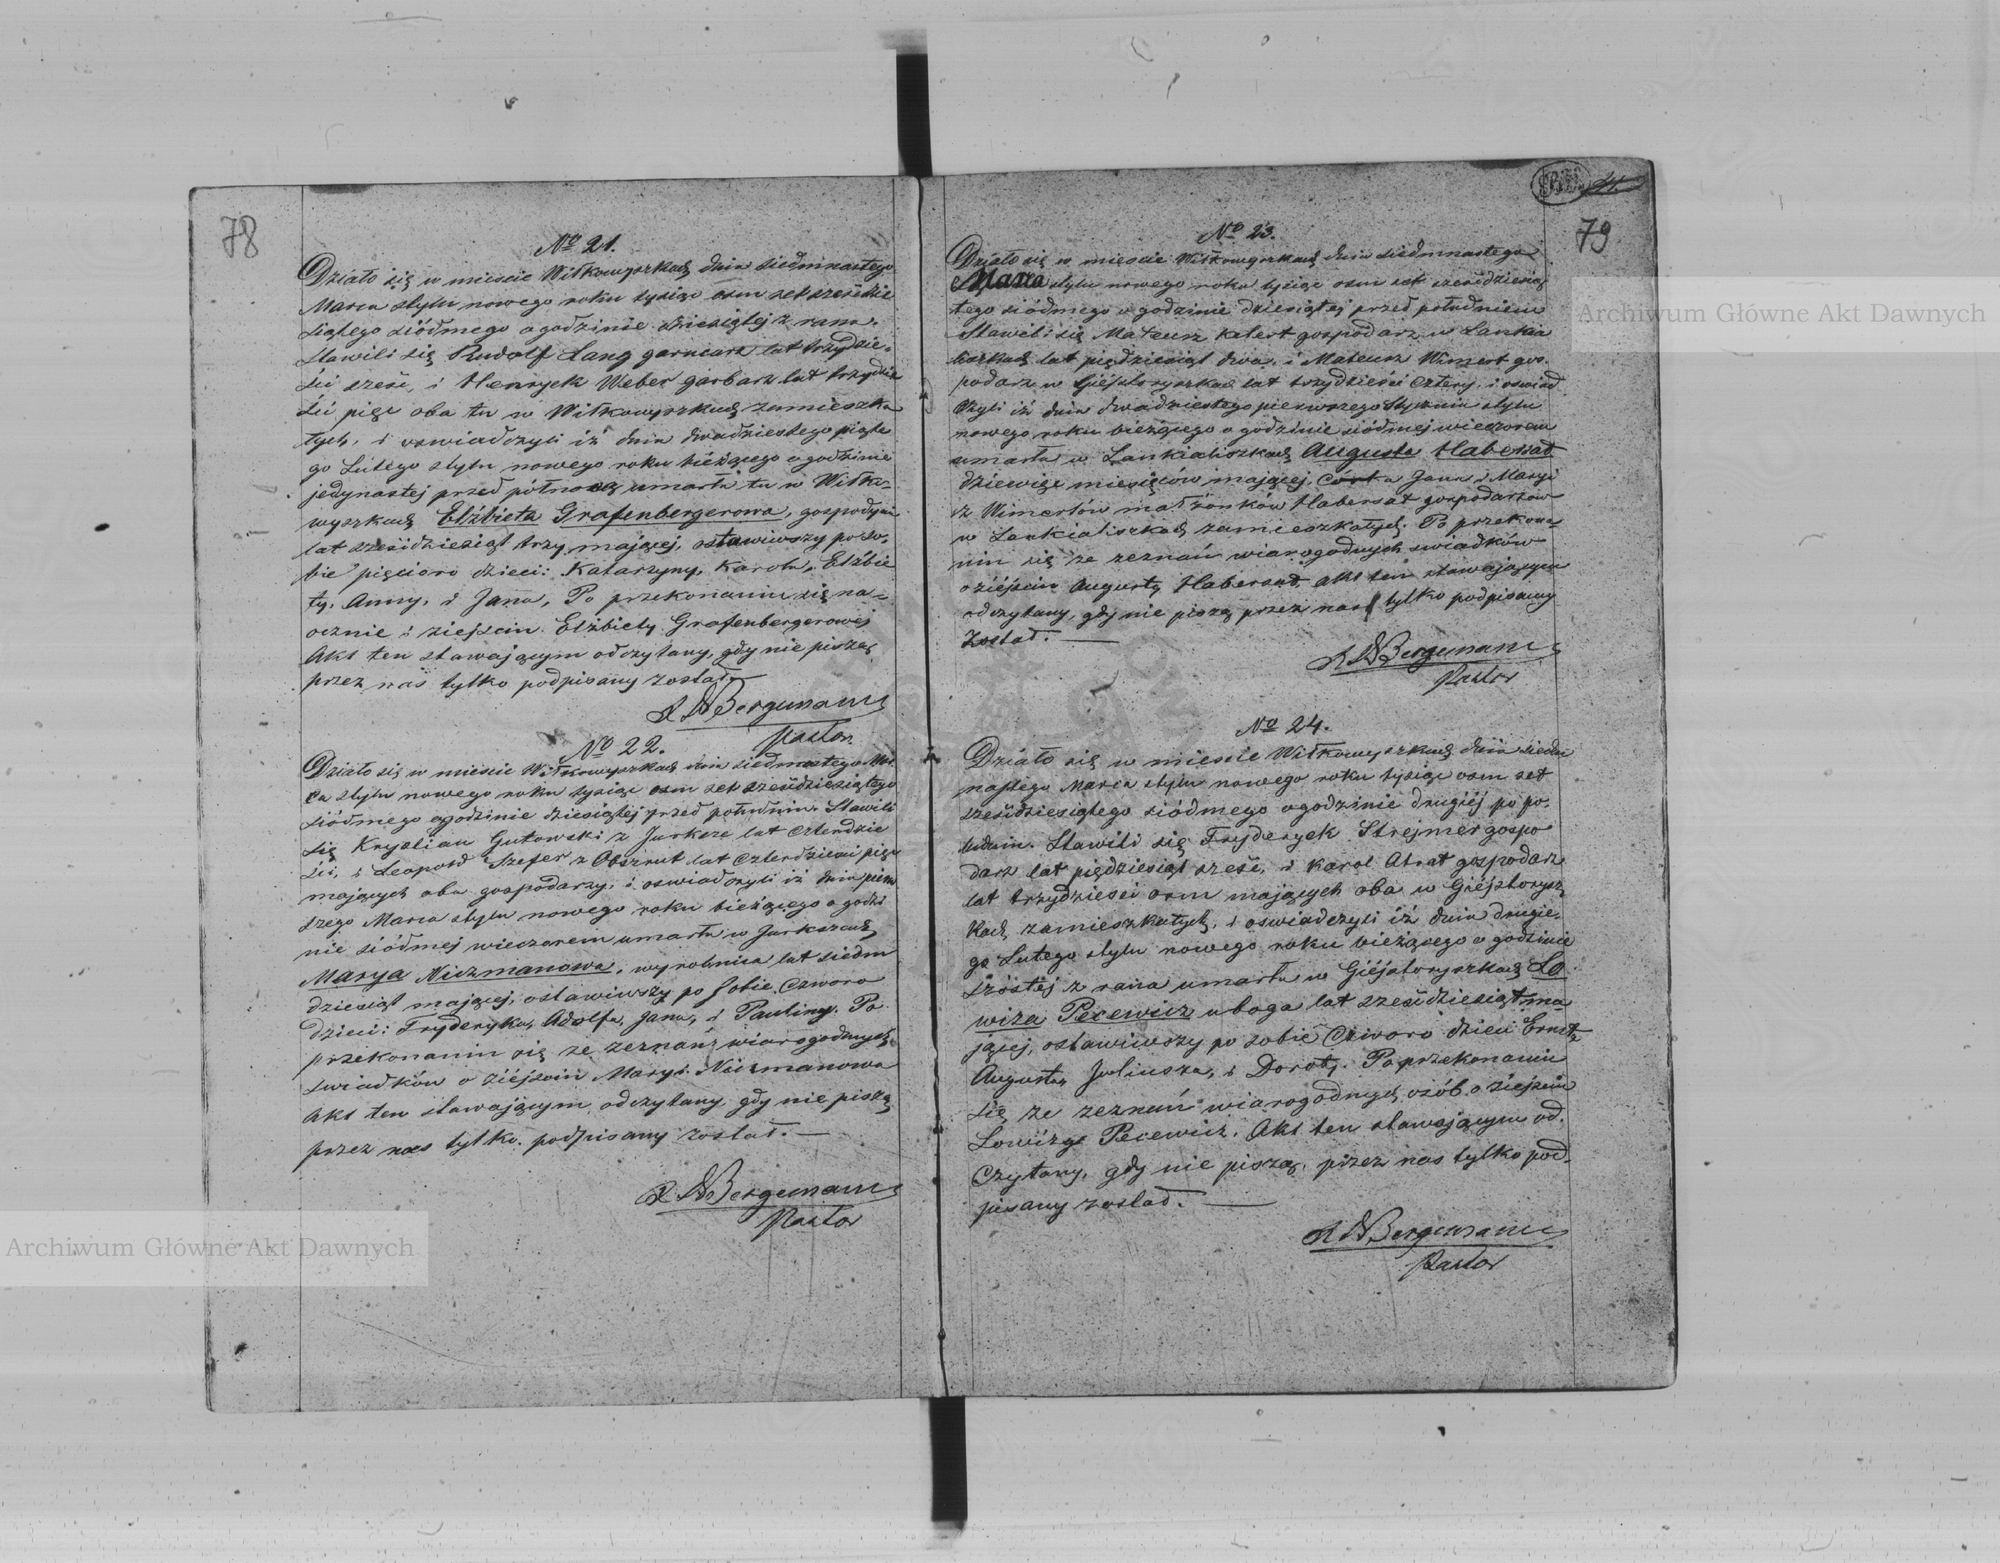 78
Nº 21.
Działo się w mieście Wiłkowyszkach dnia siedmnastego
Marca stylu nowego roku tysiąc osm set sześćdzie
siątego siódmego o godzinie dziesiątej z rana.
Stawili się Rudolf Lang garncarz lat trzydzie-
ści sześć, i Henryek Weber garbarz lat trzydzie
ści pięc oba tu w Wiłkowyszkach zamieszka
łych, i oswiadczyli iż dnia dwadziestego piąte
go Lutego stylu nowego roku bieżącego o godzinie
jedynastej przed północą umarła tu w Wiłko-
wyszkach Elżbieta Grafenbergerowa, gospodyni
lat sześćdziesiąt trzy mającej, ostawiwszy po so-
bie pięcioro dzieci: Katarzyny, Karola, Elżbie
ty, Anny, i Jana, Po przekonaniu się na-
ocznie o ziejściu Elżbiety Grafenbergerowej
Akt ten stawającym odczytany, gdy nie piszą
przez nas tylko podpisany został.
Bergemann
Pastor.
Nº 22.
Działo się w mieście Wiłkowyszkach dnia siedmnastego Mar
ca stylu nowego roku tysiąc osm set sześćdziesiątego
siódmego o godzinie dziesiątej przed południem. Stawili
się Krystian Gutowski z Jurksze lat czterdzie
ści, i Leopold Szefer z Obszrut lat czterdzieści pięc
mających oba gospodarzy, i oswiadczyli iż dnia pierw
szego Marca stylu nowego roku bieżącego o godzi
nie siódmej wieczorem umarła w Jurkszach
Marya Niczmanowa, wyrobnica lat siedm
dziesiąt mającej, ostawiwszy po sobie czworo
dzieci: Fryderyka, Adolfa, Jana, i Pauliny. Po
przekonaniu się ze zeznań wiarogodnych
swiadków o ziéjściu Maryi Niczmanowa
Akt ten stawającym odczytany gdy nie piszą
przez nas tylko podpisany został.
Bergemann
Pastor
79
Nº 23.
Działo się w mieście Wiłkowyszkach dnia siedmnastego
Marca stylu nowego roku tysiąc osm set sześćdziesią
tego siódmego o godzinie dziesiątej przed południem
Stawili się Mateusz Katert gospodarz w Lankia
liszkach lat pięćdziesiąt dwa, i Mateusz Wimert gos-
podarz w Giéjstoryszkach lat trzydzieści cztery, i oswiad
czyli iż dnia dwadziestego pierwszego Stycznia stylu
nowego roku bieżącego o godzinie siódmej wieczorem
umarła w Lankialiszkach Augusta Habersat
dziewięc miesięców mającej, Córka Jana i Maryi
z Wimertów małżonków Habersat gospodarzów
w Lankialiszkach zamieszkałych. Po przekona
niu się ze zeznań wiarogodnych swiadków
o ziéjściu Augusty Habersat Akt ten stawającym
odczytany, gdy nie piszą przez nas tylko podpisany
został.
Bergemann
Pastor
Nº 24.
Działo się w mieście Wiłkowyszkach dnia siedm
nastego Marca stylu nowego roku tysiąc osm set
sześćdziesiątego siódmego o godzinie drugiéj po po-
łudniu. Stawili się Fryderyck Strejmer gospo
darz lat pięćdziesiąt sześć, i Karol Abrat gospodarz
lat trzydzieści osm mających oba w Giéjstorysz
kach zamieszkałych, i oswiadczyli iż dnia drugie-
go Lutego stylu nowego roku bieżącego o godzinie
szóstéj z rana umarła w Giéjstoryszkach Lo
wiza Pecewicz uboga lat sześćdziesiąt ma
jącej, ostawiwszy po sobie Czworo dzieci Ernsta
Augusta, Juliusza, i Doroty. Po przekonaniu
się ze zeznań wiarogodnych osób o ziejściu
Lowizy Pecewicz, Akt ten stawającym od-
czytany, gdy nie piszą, przez nas tylko pod-
pisany został.
Bergemann
Pastor
Archiwum Główne Akt Dawnych
Archiwum Główne Akt Dawnych